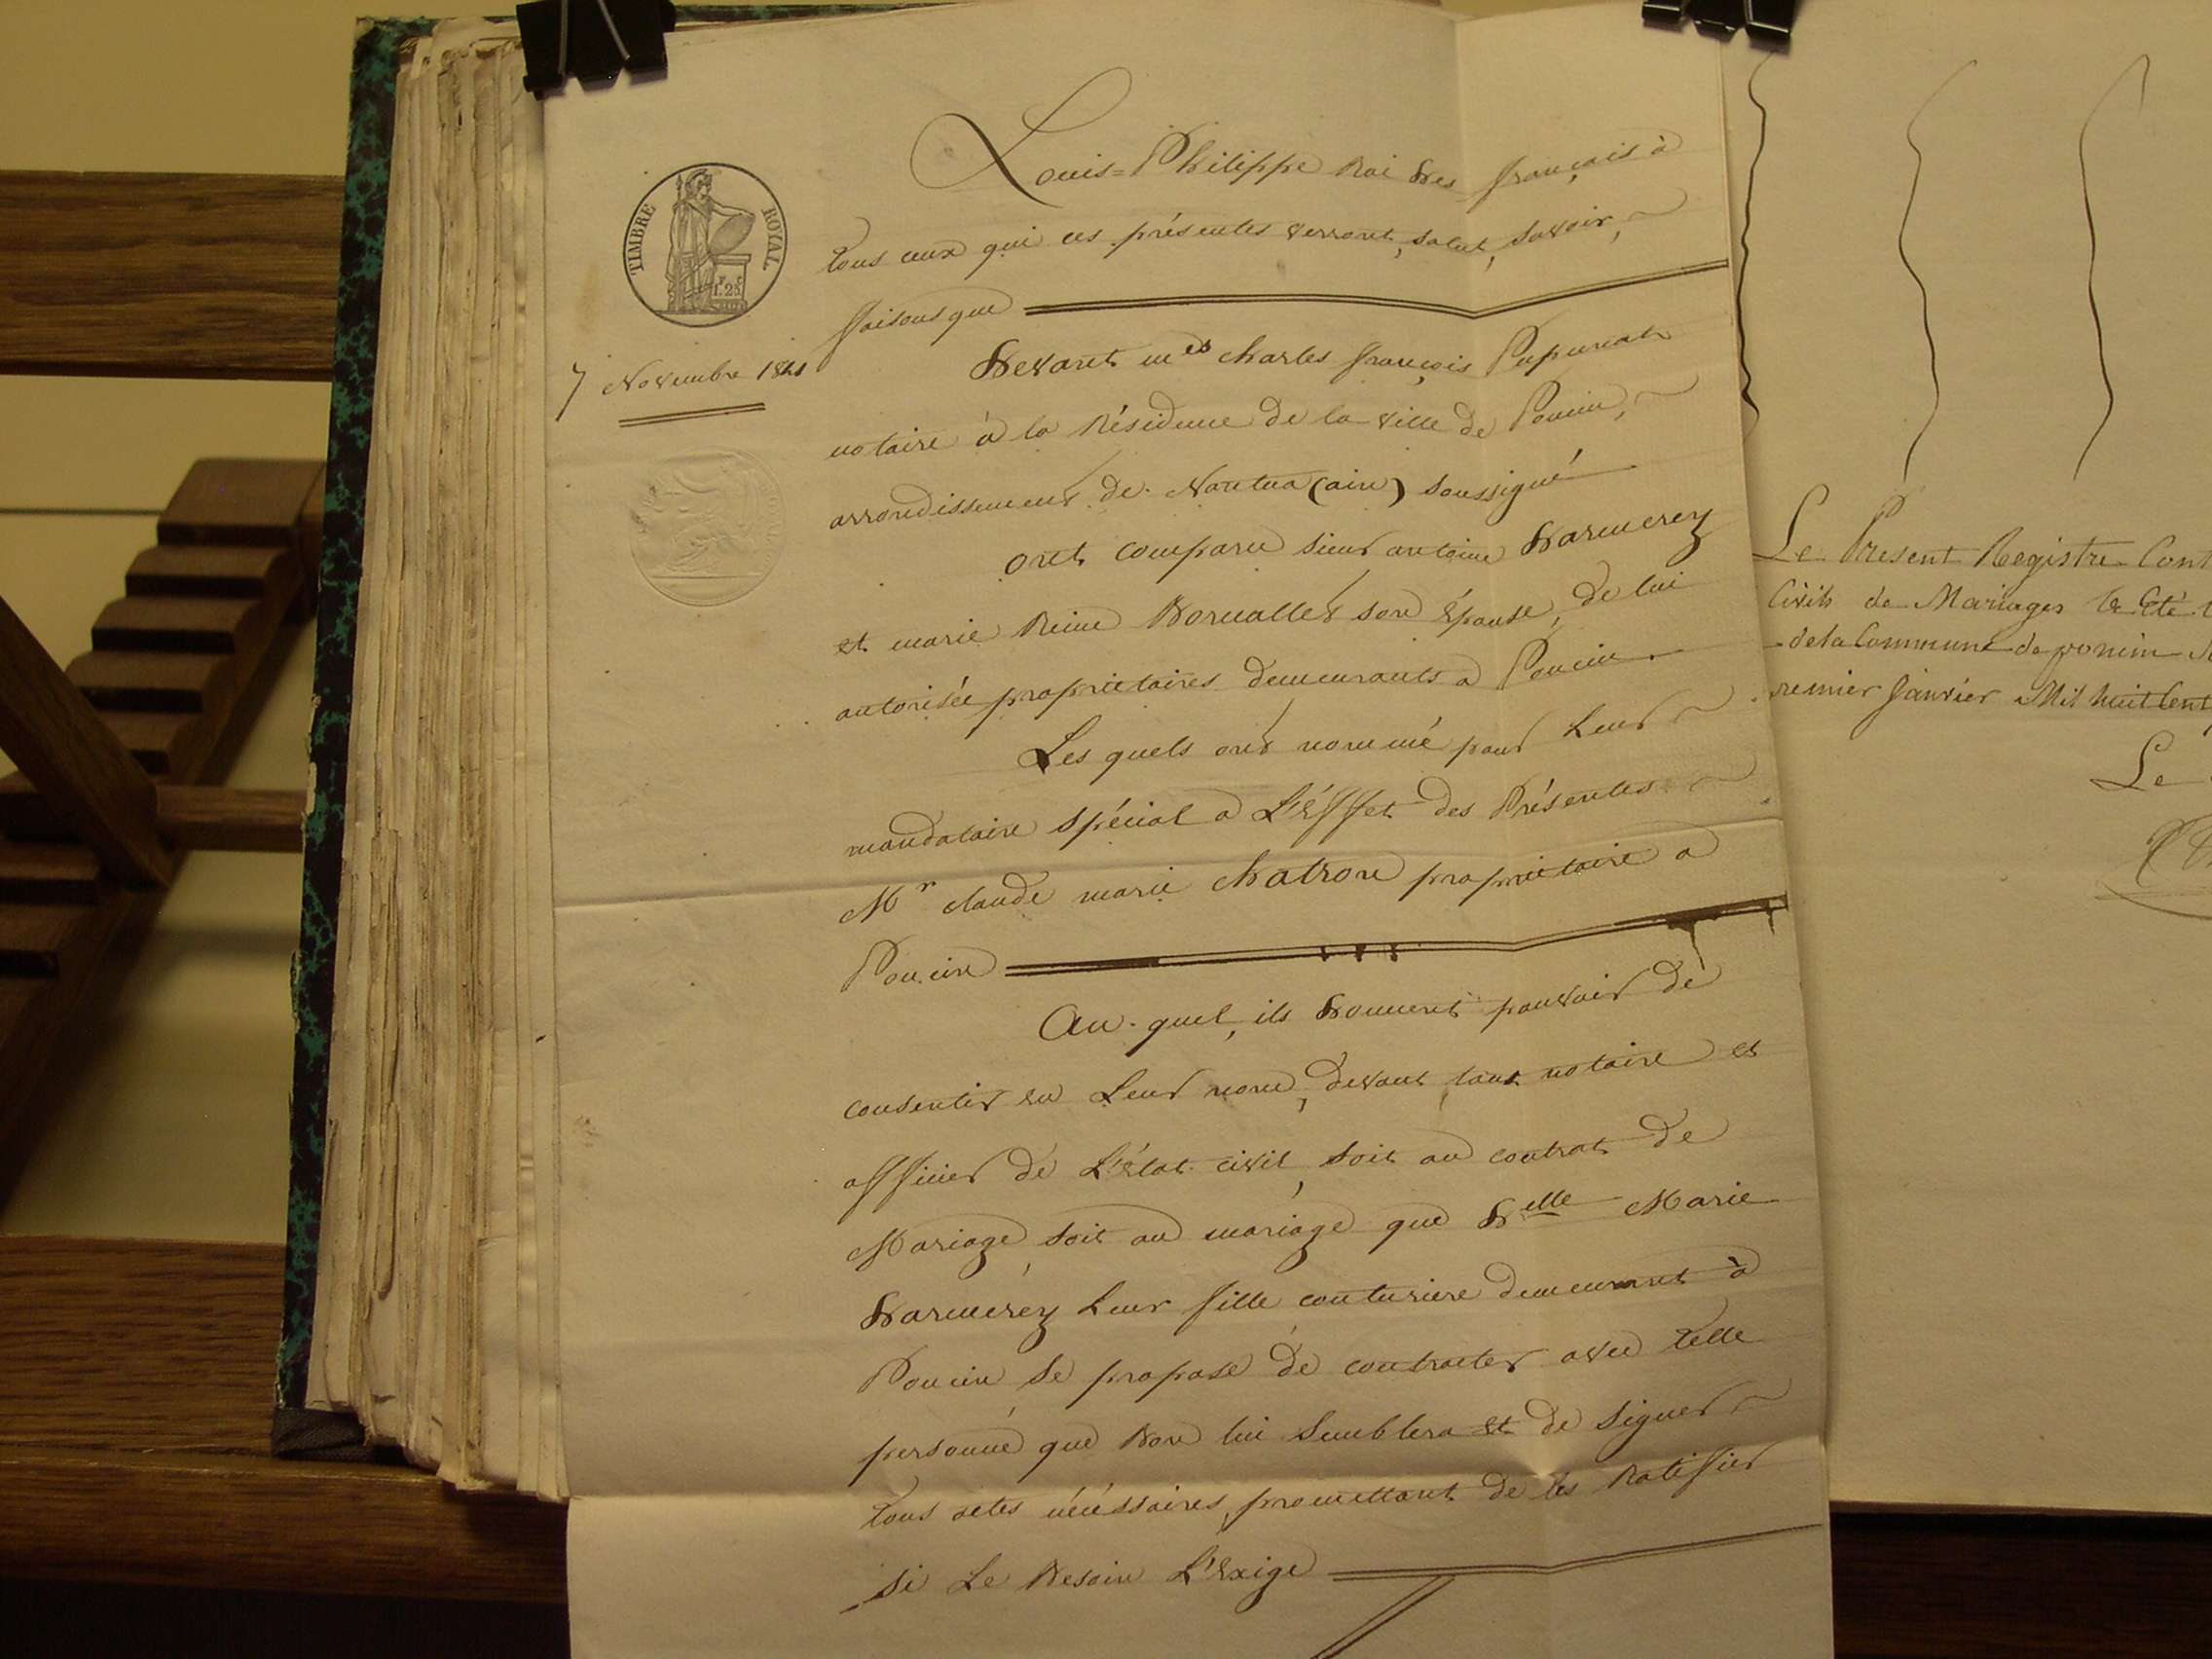 TIMBRE ROYAL
F. C.
1. 25
7 Novembre 1841
Louis=Philippe Roi des français à
tous ceux qui ces présentes verront, salut, savoir,
faisons que
Devant me Charles françois
notaire à la Résidence de la ville de Poncin,
arrondissement de Nantua (ain) soussigné
ont comparu sieur antoine Darmerey
et marie Reine Bornallet son épouse, de lui
autorisée propriétaires demeurants a Poncin
Les quels ont nommé pour Leur
mandataire spécial a L'éffet des Présentes
Mr claude marie Chatron propriétaire a
Poncin
Au quel, ils donnent pouvoir de
consentir en Leur nom, devant, tout notaire et
officier de L'état civil, soit au contrat de
Mariage, soit au mariage que Delle Marie
Darmerey Leur fille couturière demeurant à
Poncin se propose de contracter avec telle
personne que bon lui semblera et de signer
tous actes nécéssaires, promettant de les Ratifier
si Le Besoin L'exige
Le Présent Registre Cont
Civils de Mariages à Eté
de la Commune de poncin
premier Janvier Mil huit Cent
Le